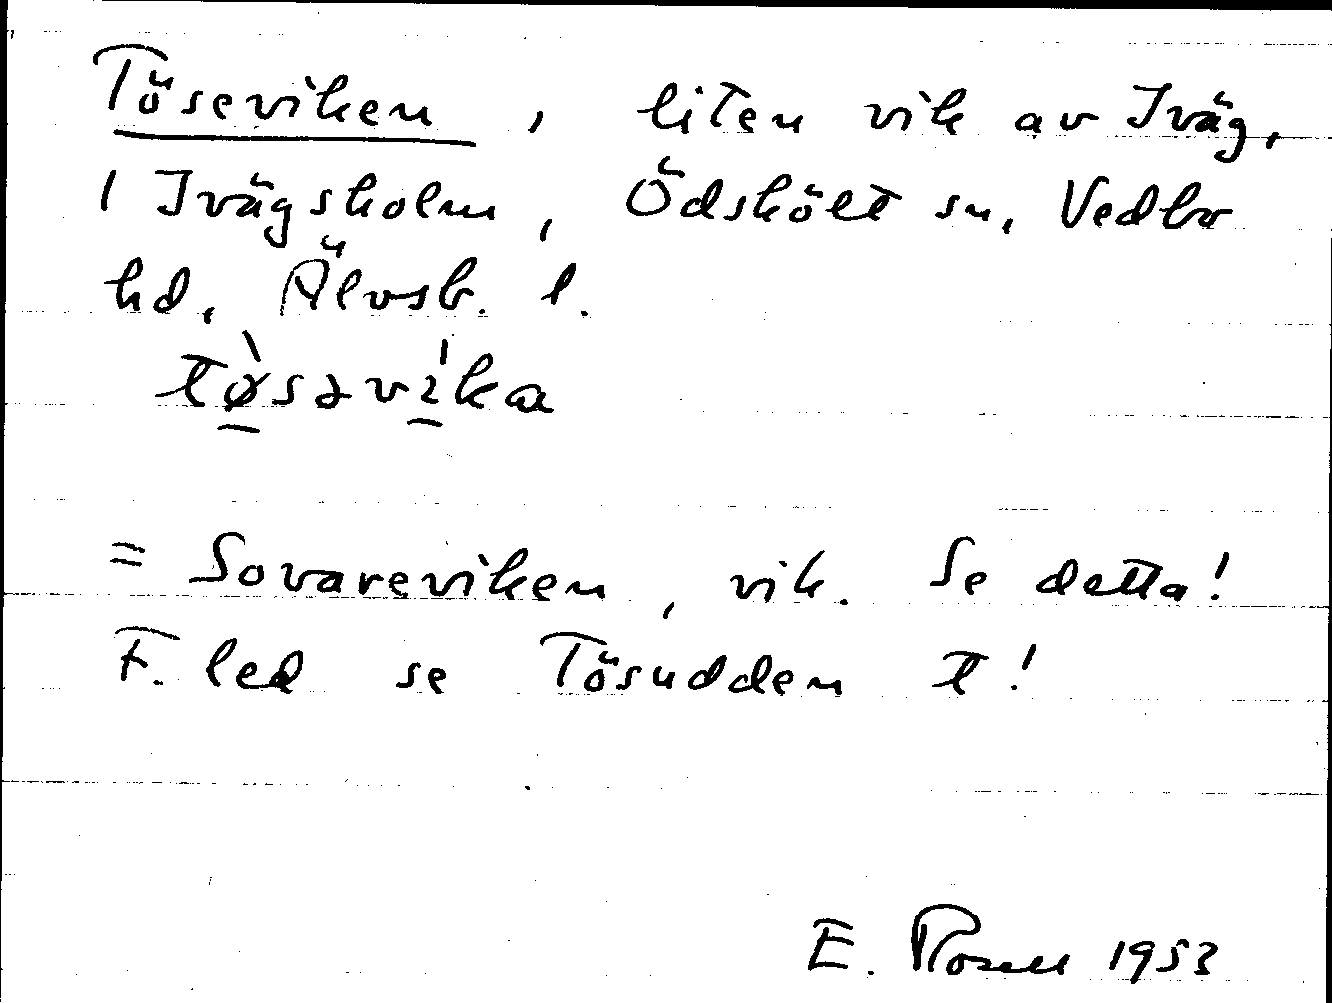 Töseviken, liten vik av Iväg,
1 Ivägsholm, Ödskölt sn, Vedbo
hd, Älvsb. l.
tø̀səvíka
= Sovareviken, vik. Se detta!
F. led se Tösudden t!
E. Rosell 1953